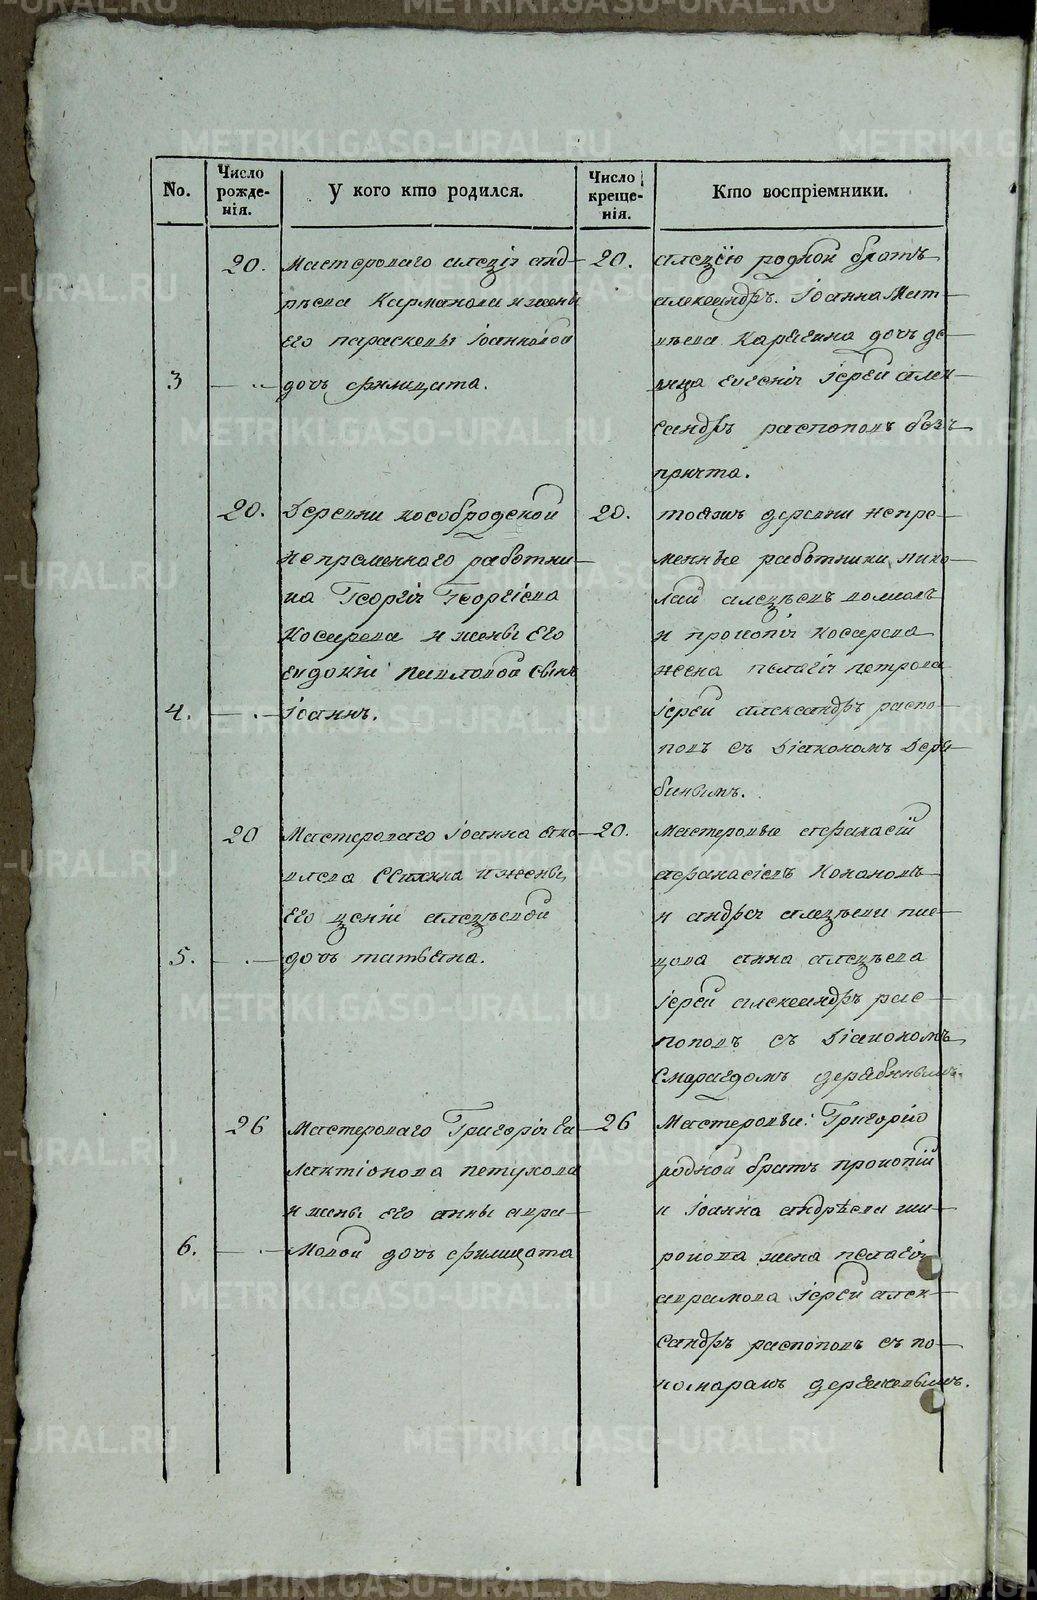 No.
Число рожде-нія.
У кого кто родился.
Число креще-нія.
Кто воспріемники.
20.
Мастероваго алеѯіѧ анд-
рѣева Карманова и жены
его параскевы Іоанновой
3
дочь филицата.
20.
алеѯію родной братъ
александръ. Іоанна Мат-
вѣева Карѧгина дочь де-
вица евгеніѧ іерей алек-
сандръ распоповъ безъ
причта.
20.
Деревни кособродской
непременнаго работни-
ка Георгіѧ Георгіева
Косарева и жены его
евдокіи Павловой сынъ
4.
Іоаннъ.
20.
тоѧжъ деревни непре-
менные работники нико-
лай алеѯѣевъ
и прокопіѧ косарева
жена пелагіѧ петрова
іерей александръ распо-
повъ съ діакономъ Дерѧ-
бинымъ.
20
Мастероваго Іоанна ѧко-
влева и жены
его ѯеніи алеѯѣевой
5.
дочь татьѧна.
20.
Мастеровые афанасій
афанасіевъ Кононовъ
и андреѧ алеѯѣева
анна алеѯѣева
іерей александръ рас-
поповъ съ діакономъ
Смарагдомъ дерѧбинымъ.
26
Мастероваго Григоріѧ Га
лактіонова петухова
и жены его анны авра-
6.
мовой дочь филицата
26
Мастеровые: Григорію
родной братъ прокопій
и Іоанна андрѣева ши-
рокова жена пелагіѧ
аврамова іерей алек-
сандръ распоповъ съ по-
номаремъ
METRIKI.GASO-URAL.RU